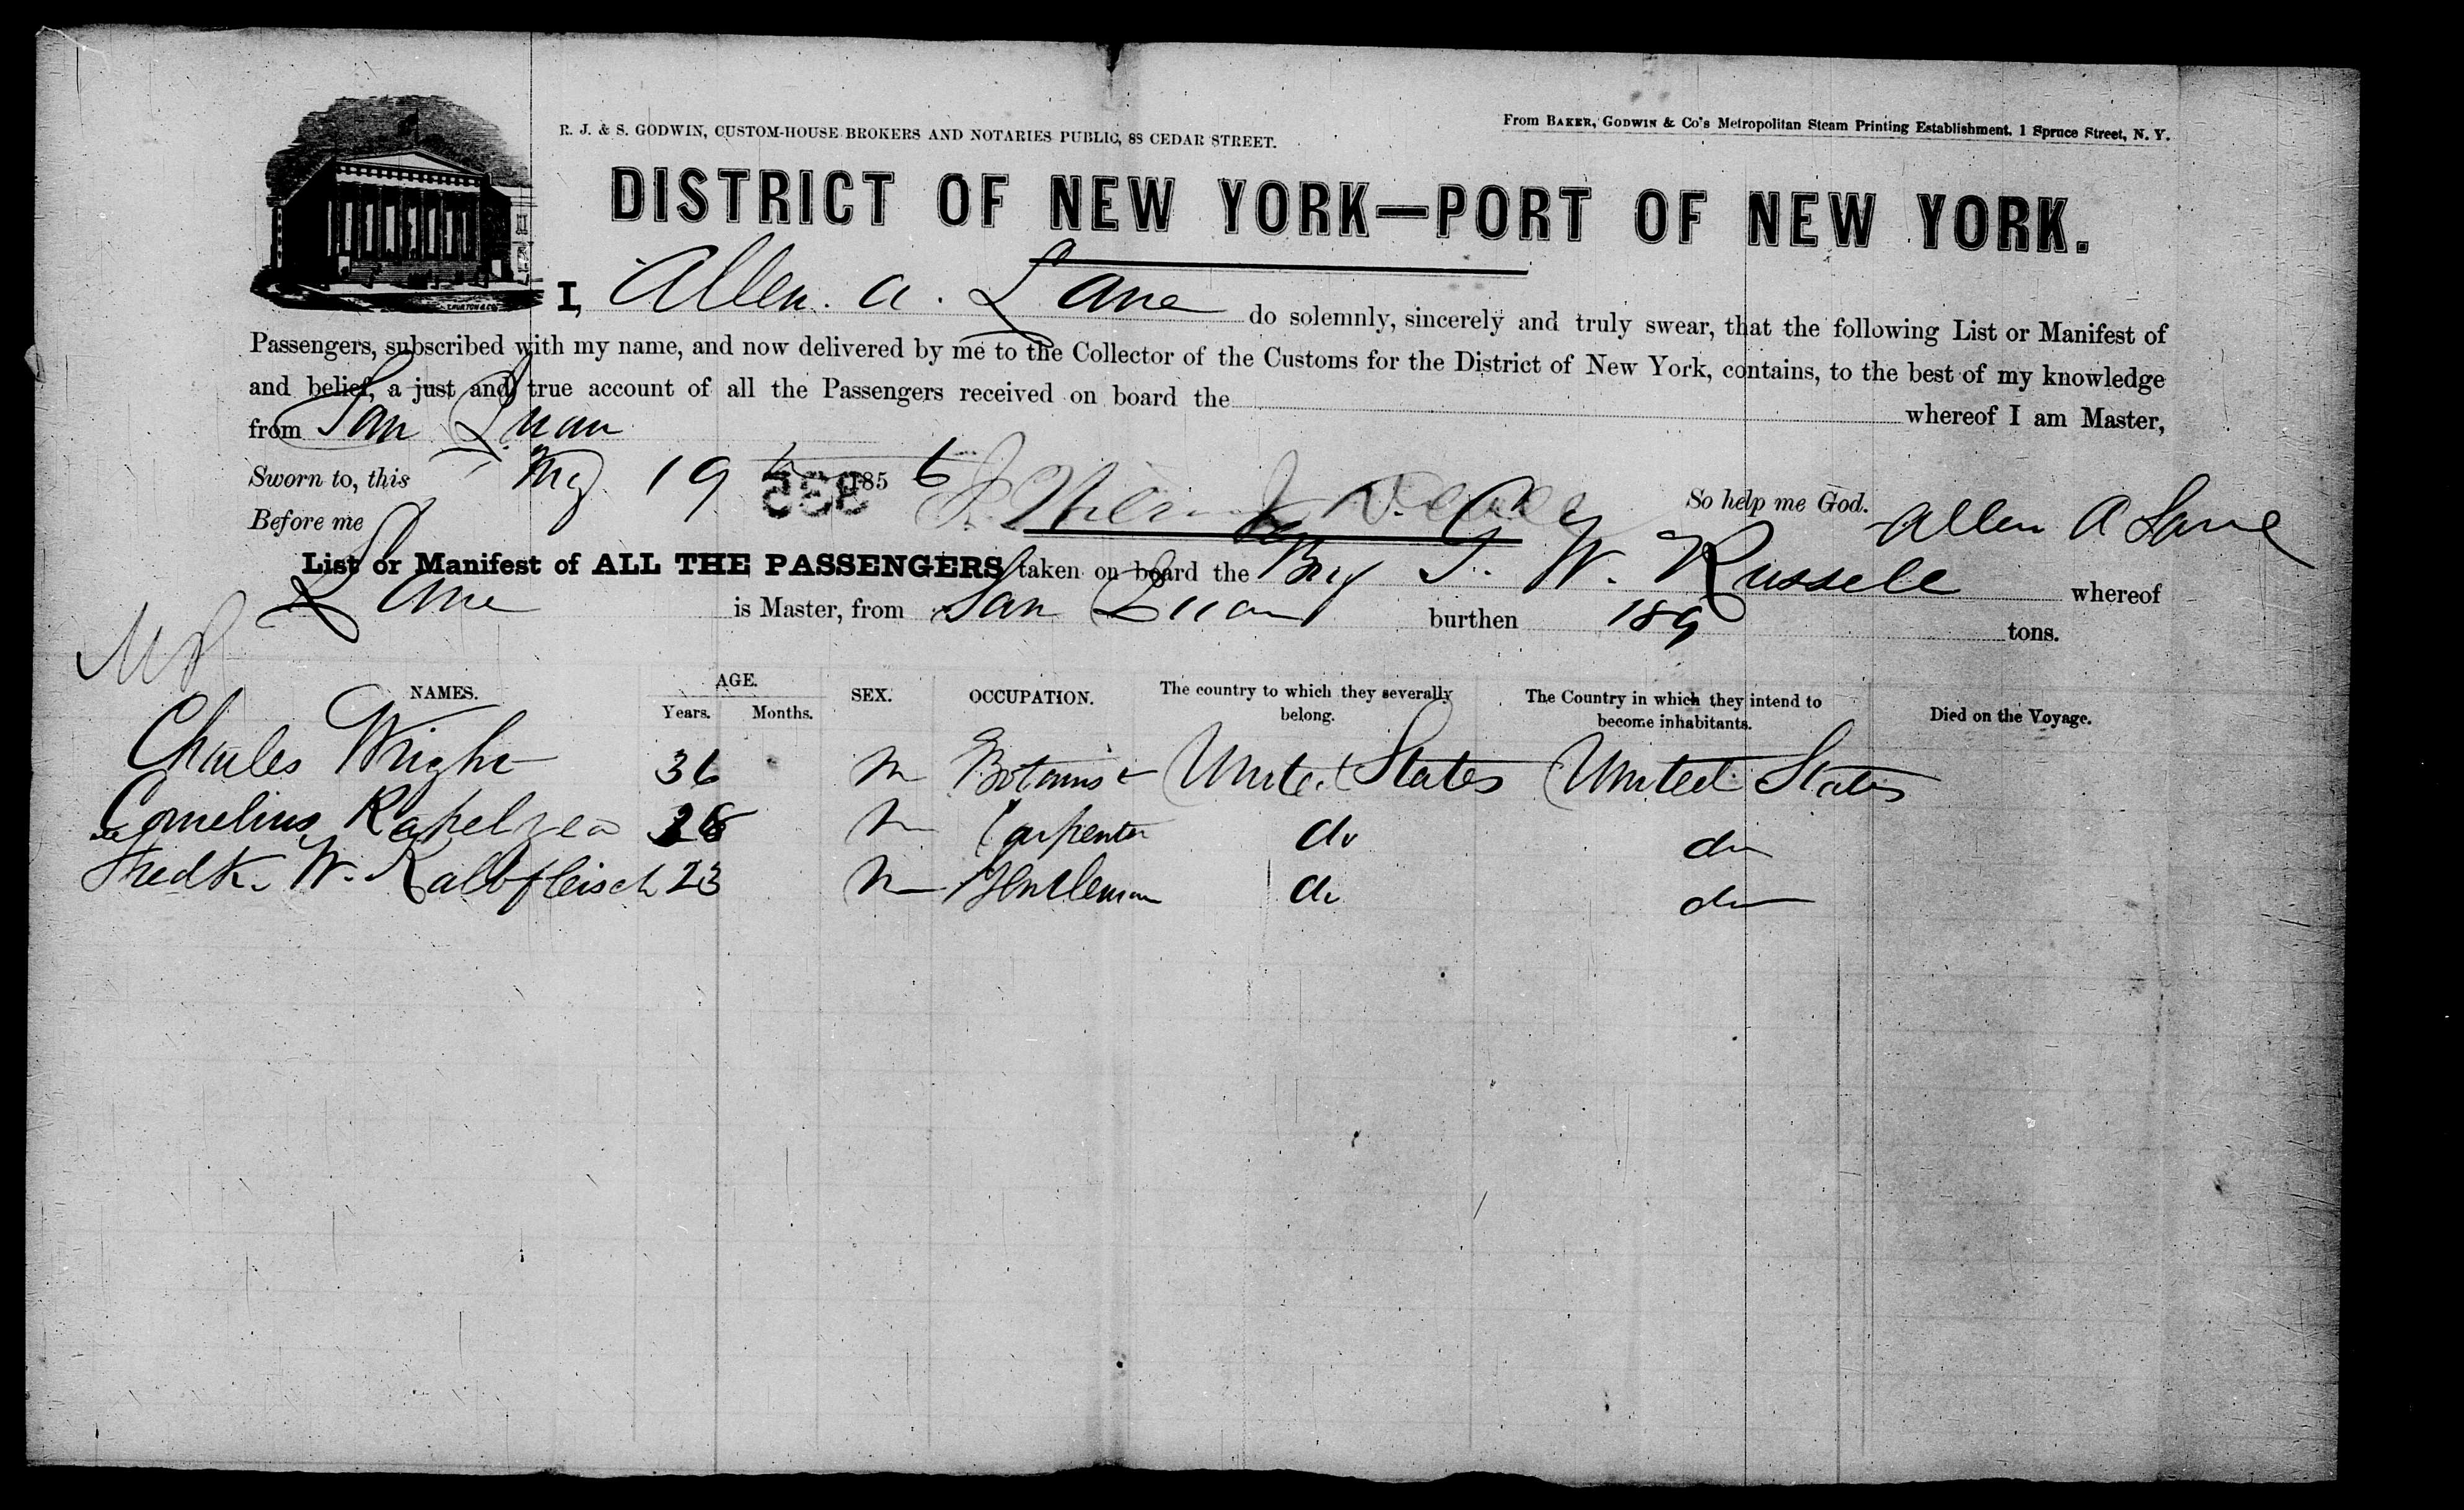 R. J. & S. GODWIN, CUSTOM-HOUSE BROKERS AND NOTARIES PUBLIC, 88 CEDAR STREET.
From BAKER, GODWIN & Co's Metropolitan Steam Printing Establishment, 1 Spruce Street, N. Y.
DISTRICT OF NEW YORK—PORT OF NEW YORK.
I, Allen. A. Lane do solemnly, sincerely and truly swear, that the following List or Manifest of
Passengers, subscribed with my name, and now delivered by me to the Collector of the Customs for the District of New York, contains, to the best of my knowledge
and belief, a just and true account of all the Passengers received on board the whereof I am Master,
from San Juan
Sworn to, this 19 1856 So help me God. Allen A Lane
Before me
List or Manifest of ALL THE PASSENGERS taken on board the Brig T. W. Russell whereof
Lane is Master, from San Juan burthen 189 tons.
NAMES. AGE. SEX. OCCUPATION. The country to which they severally belong. The Country in which they intend to become inhabitants. Died on the Voyage.
Years. Months.
Charles Wright 36 m Botanist United States United States
Cornelius m Carpenter do do
Fredk. W. Kalbfleisch 23 m Gentleman do do